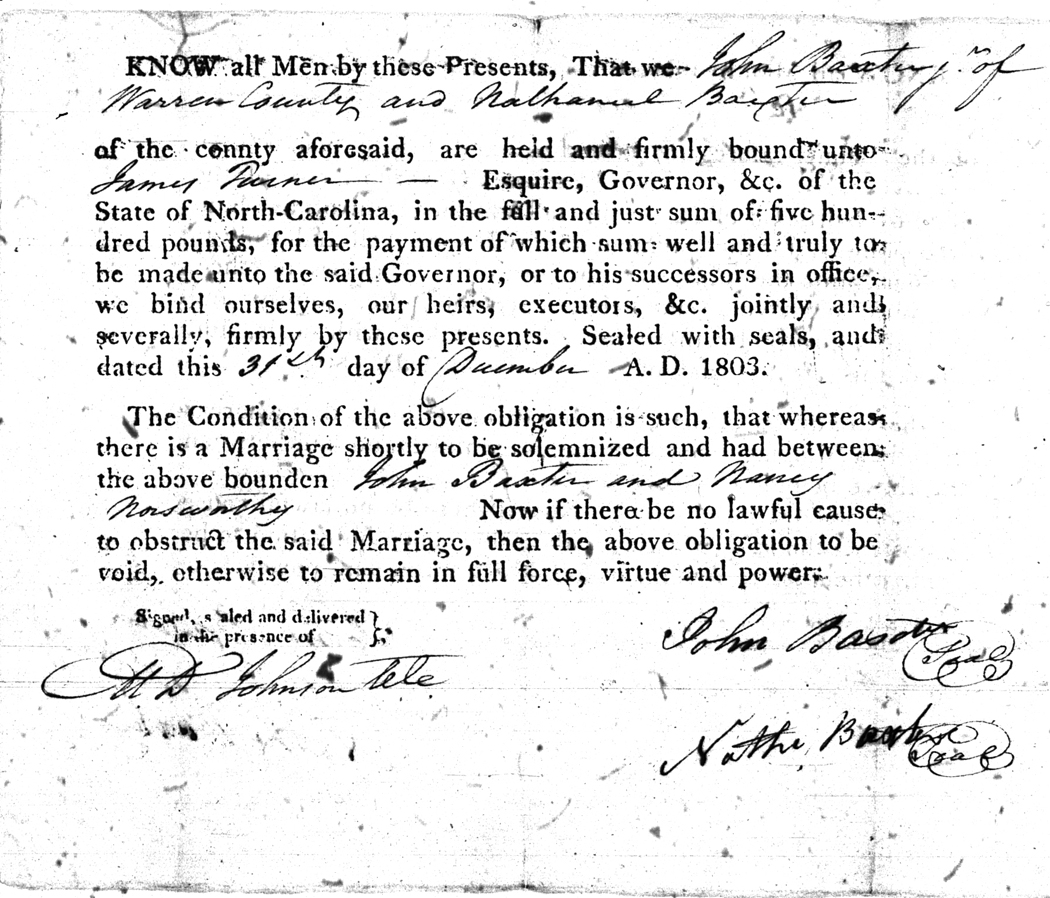 KNOW all Men by these Presents, That we John Baxter jr. of
Warren County and Nathaniel Baxter
of the connty aforesaid, are held and firmly bound unto
James Turner — Esquire, Governor, &c. of the
State of North-Carolina, in the full and just sum of five hun-
dred pounds, for the payment of which sum well and truly to
be made unto the said Governor, or to his successors in office,
we bind ourselves, our heirs, executors, &c. jointly and
severally, firmly by these presents. Sealed with seals, and
dated this 31st day of December A. D. 1803.
The Condition of the above obligation is such, that whereas
there is a Marriage shortly to be solemnized and had between
the above bounden John Baxter and Nancy
Norsworthy Now if there be no lawful cause
to obstruct the said Marriage, then the above obligation to be
void, otherwise to remain in full force, virtue and power.
Signed, sealed and delivered }
in the presence of }
M. D. Johnson
John Baxter Seal
Nathl. Baxter Seal